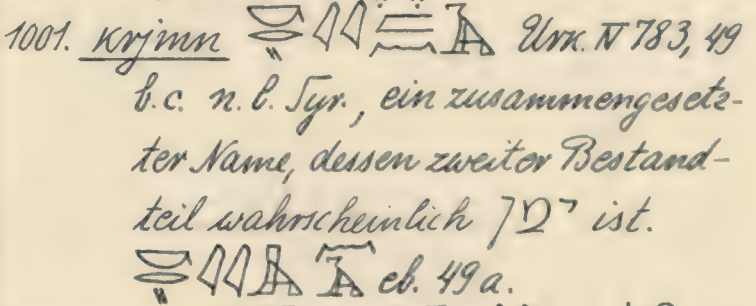 1001. krjmn Urk. IV 783, 49
b. c. n. l. Syr., ein zusammengesetz-
ter Name, dessen zweiter Bestand-
teil wahrscheinlich ימן ist.
eb. 49 a.